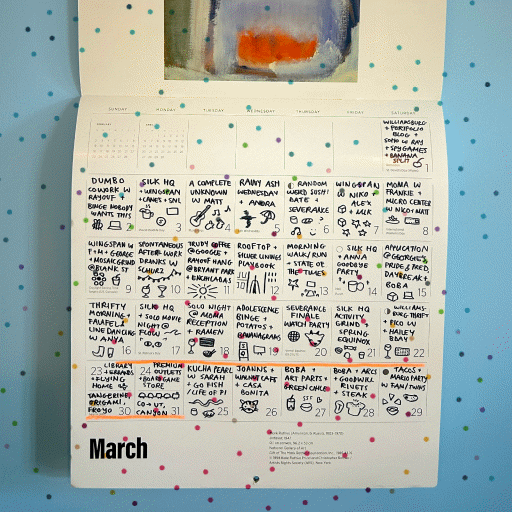 SUNDAY MONDAY TUESDAY WEDNESDAY THURSDAY FRIDAY SATURDAY
WILLIAMSBURG
+ PORTFOLIO
BLOG +
SOPO W RAY
+ SPY GAMES
+ BANANA
SPLIT
1
DUMBO
COWORK W
RAYOUF +
BINGE NOBODY
WANTS THIS
2
SILK HQ
+ WINGSPAN
+ CANES + SNL
3
A COMPLETE
UNKNOWN
W MATTY
4
RAINY ASH
WEDNESDAY
+ ANDORA
5
RANDOM
WORD SUSHI
DATE +
SEVERANCE
6
WINGSPAN
W NIKO
ALEX
+ MIK
7
MOMA W
FRANKIE +
MICRO CENTER
W NIKO + MATT
8
WINGSPAN W
+ GNOME +
MOSAIC GRIND
@ BLANK ST
9
SPONTANEOUS
AFTER WORK
DRINKS W
SCHURZ
10
TRUDY COFFEE
@ GOOGLE +
RAYOUF HANG
@ BRYANT PARK
+ ENCHILADAS
11
ROOFTOP +
SILVER LININGS
PLAYBOOK
12
MORNING
WALK/RUN
+ STATE OF
THE TUNES
13
SILK HQ
+ ANNA
GOODBYE
PARTY
14
APPLICATION
@ GEORGE'S
PRIDE & PREJ,
DAYBREAK +
BOBA
15
THRIFTY
MORNING,
FALAFEL +
LINE DANCING
W ANYA
16
SILK HQ
+ SOLO MOVIE
NIGHT @
FLOW
17
SOLO NIGHT
@ MOMA
RECEPTION
+ RAMEN
18
ADOLESCENCE
BINGE +
POTATOS +
BANANAGRAMS
19
SEVERANCE
FINALE
WATCH PARTY
20
SILK HQ
ACTIVITY
GRIND +
SPRING
EQUINOX
21
WILLIAMS-
BURG THRIFT
+ PICO W
HAILEY
BDAY
22
23
LIBRARY
+ FLYING
HOME
24
PREMIUM
OUTLETS
+ BOARD GAME
STORE
KUCHA PEARL
W SARAH
+ GO FISH
/ LIFE OF PI
25
JOANNS +
WALNUT CAFE
+ CASA
BONITA
26
BOBA +
ART PARTS +
GREEN CHILE
27
BOBA + ARCS
+ GOODWILL
RIVETS
+ STEAK
28
TACOS +
MARIO PARTY
W FAM / TWINS
29
TANGERINE,
ORIGAMI,
FROYO 30
CO → UT,
CANYON 31
March